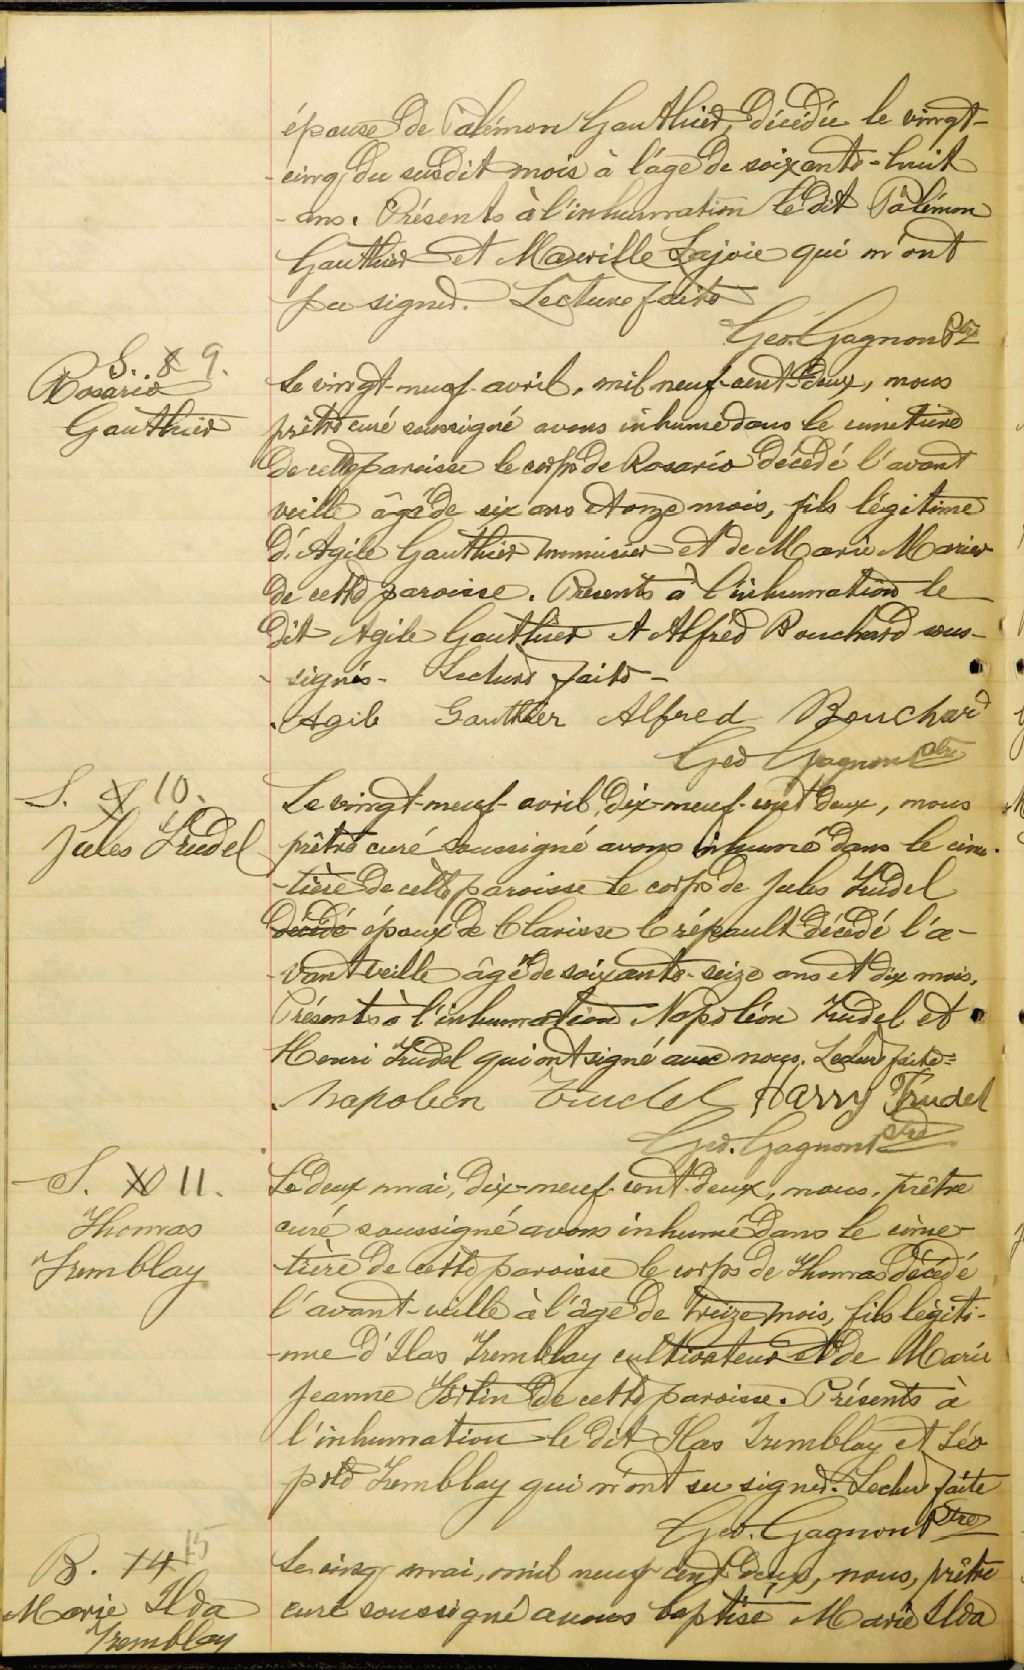 épouse de Palémon Gauthier, décédée le vingt-
-cinq du susdit mois à l'âge de soixante-huit
-ans. Présents à l'inhumation le dit Palémon
Gauthier et Maxville Lajoie qui n'ont
pu signer. Lecture faite
Geo. Gagnon Ptre
S. 8 9.
Rosario
Gauthier
Le vingt-neuf avril, mil neuf-cent-deux, nous
prêtre curé soussigné avons inhumé dans le cimetière
de cette paroisse le corps de Rosario décédé l'avant
veille âgé de six ans et onze mois, fils légitime
d'Agile Gauthier menuisier et de Marie Marier
de cette paroisse. Présents à l'inhumation le
dit Agile Gauthier et Alfred Bouchard sous-
-signés- Lecture faite-
Agile Gauthier Alfred Bouchard
Geo Gagnon Ptre
S. 9 10.
Jules Trudel
Le vingt-neuf-avril, dix-neuf-cent deux, nous
prêtre curé soussigné avons inhumé dans le cime-
-tière de cette paroisse le corps de Jules Trudel
décédé époux de Clarisse Crépault décédé l'a-
-vant veille âgé de soixante-seize ans et dix mois.
Présents à l'inhumation Napoléon Trudel et
Henri Trudel qui ont signé avec nous. Lecture faite=
Napoleon Trudel Harry Trudel
Geo. Gagnon Ptre
S. 10 11.
Thomas
Tremblay
Le deux mai, dix-neuf-cent-deux, nous, prêtre
curé soussigné avons inhumé dans le cime-
-tière de cette paroisse le corps de Thomas décédé
l'avant-veille à l'âge de treize mois, fils légiti-
-me d'Ilas Tremblay cultivateur et de Marie
Jeanne Fortin de cette paroisse. Présents à
l'inhumation le dit Ilas Tremblay et Léo
pold Tremblay qui n'ont su signer. Lecture faite
Geo. Gagnon Ptre
B. 14 15
Marie Ilda
Tremblay
Le cinq mai, mil neuf cent-deux, nous, prêtre
curé soussigné avons baptisé Marie Ilda